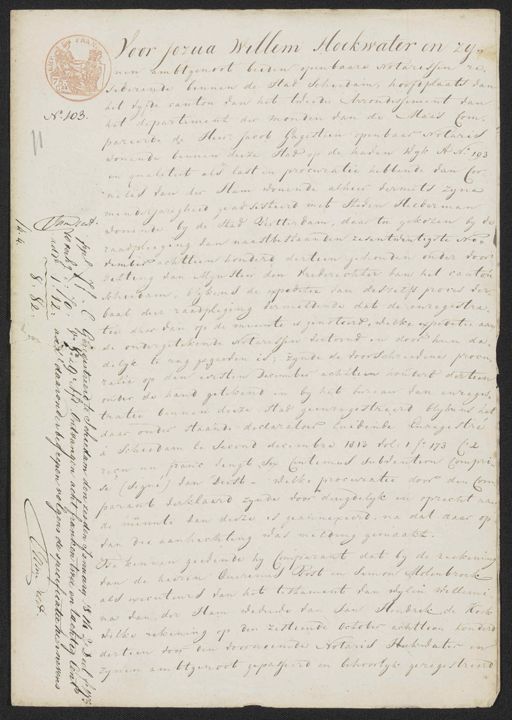 Voor Jozua Willem Hoekwater en Zy„
nen ambtgenoot beiden openbare Notarissen re„
sideerende binnen de Stad Schiedam, hoofdplaats van
het zyde canton van het tweede Arrondissement van
het departement der monden van de Maas Com„
pareerde de Heer Jacob openbaar Notaris
wonende binnen deze Stad op de haven Wyk A No 193
in qualiteit als last en procuratie hebbende van Cor„
nelis van der Stam wonende alhier vermits zyne
minderjarigheid geadsisteerd met
wonende by de Stad Rotterdam, daar toe gekozen by de
raadpleging van naastbestaanden zesentwintigste No„
vember achttien honderd dertien gehouden onder voor„
zitting van Mynheer den Vrederechter van het canton
Schiedam, blykens de expeditie van deszelfs proces ver„
baal dier raadpleging vermeldende dat de enregistra„
tie daar van op de minute is genoteerd, welke expeditie aan
de ondergetekende Notarissen vertoond en door hun da„
delyk te rug gegeven is; zynde de voorschrevene procu„
ratie op den eersten December achttien honderd dertien
onder de hand getekend en by het bureau van enregis„
tratie binnen deze Stad geenregistreerd blykens het
daar onder staande declaratoir luidende Enregistré
à Schiedam le Second decembre 1813 Vol. 1 fo 173 Co 2
reçu un franc dengt Six Centimes Subvention Compri„
se (Signé) Van Dest - welke procuratie door den Com„
parant verklaard zynde voor deugdelyk en oprecht aan
de minute van deze is geannexeerd, na dat daar op
van die aanhechting was melding gemaakt.
Te kennen gevende hy Comparant dat by de rekening
van de heeren Quirinus Post en Simon Molenbroek
als executeurs van het testament van wylen Willemi„
na van der Stam Weduwe van Jan Hendrik de Kock
welke rekening op den zestiende October achttien honderd
dertien voor den voornoemde Notaris Hoekwater en
zynen ambtgenoot gepasseerd en behoorlyk geregistreerd
No. 103.
11
Geregistreerd te Schiedam den
Ontvangen acht franken twee en tachtig Centimes
daaronder begrepen volgens de specificatie hiernevens
8: 82.
14.4